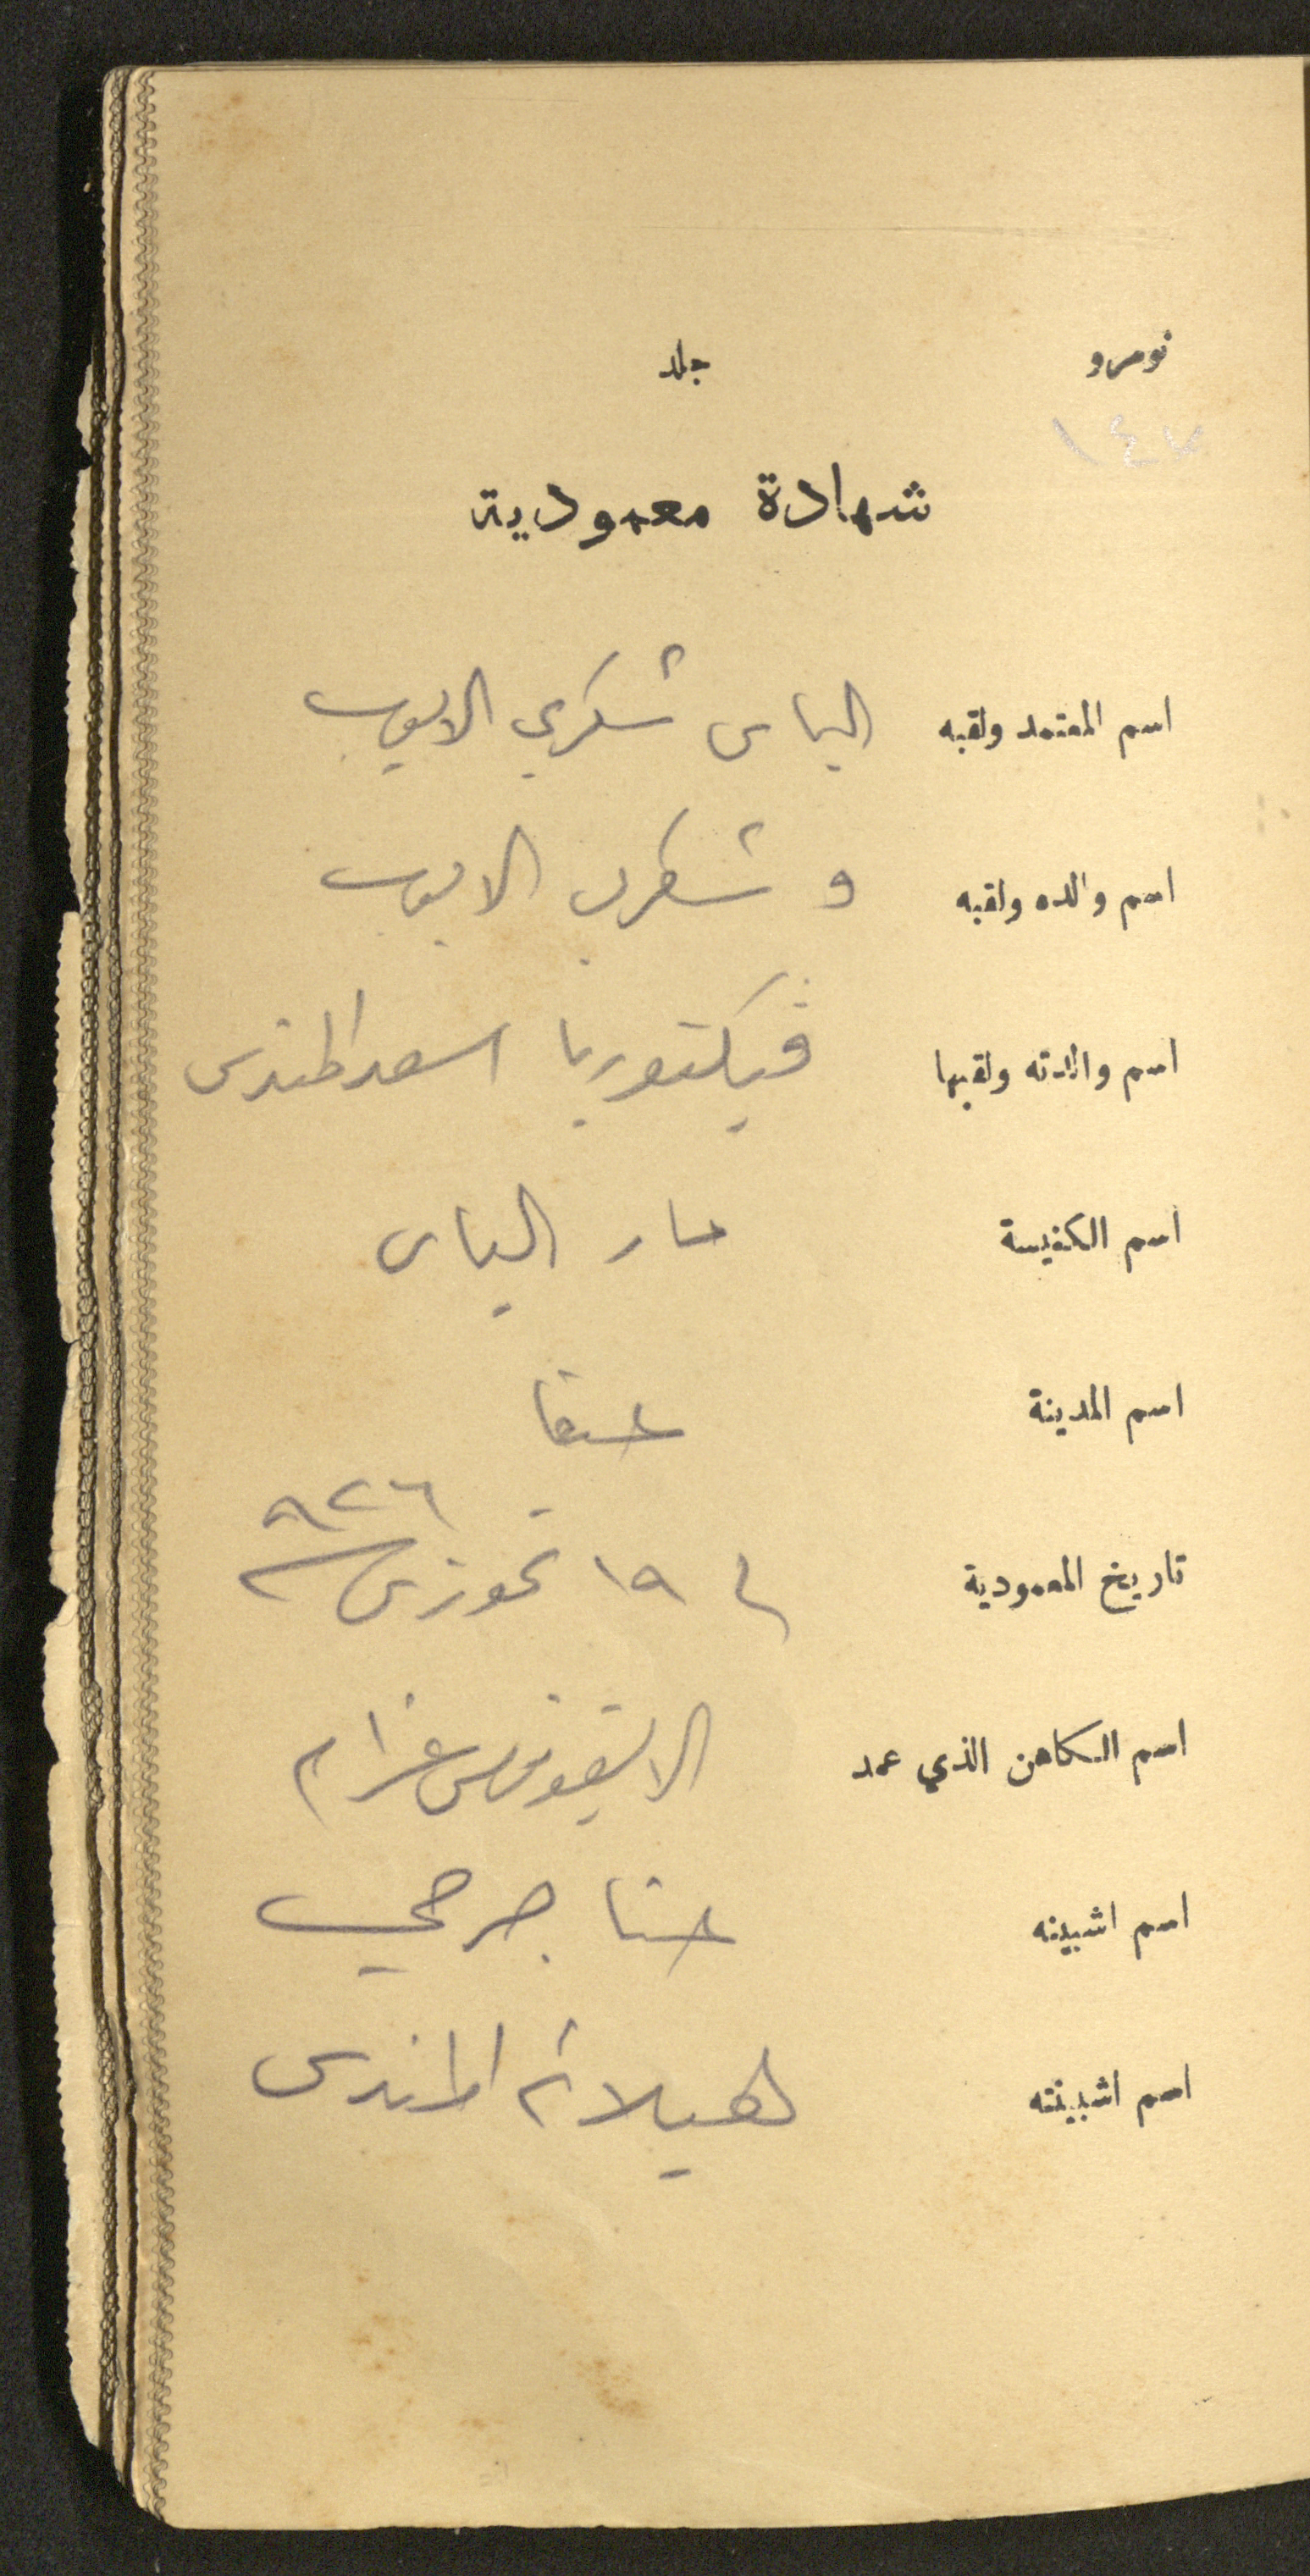 نومرو جلد
١٤٧
شهادة معمودية
اسم المعتمد ولقبه الياس شكري الايوب
اسم والده ولقبه و شكري الايوب
اسم والدته ولقبها ڤيكتوريا اسعد
اسم الكنيسة مار الياس
اسم المدينة حيفا
تاريخ المعمودية في ١٩ تموز سنة ٩٢٦
اسم الكاهن الذي عمد الايقونومس غرام
اسم اشبينه حنا جرجي
اسم اشبينته هيلانة